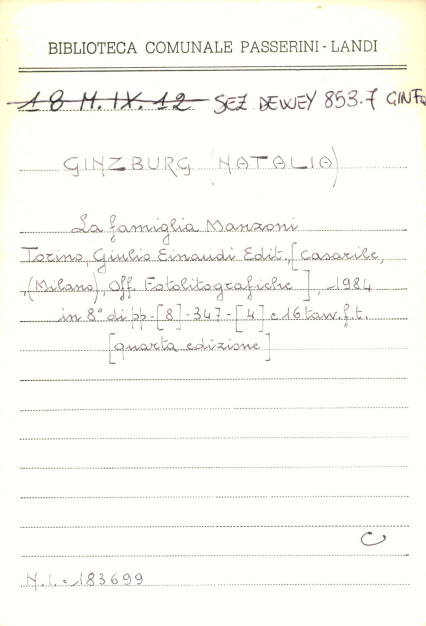 BIBLIOTECA COMUNALE PASSERINI - LANDI
18 H. IX. 12 SEZ DEWEY 853.7 GINFa
GINZBURG (NATALIA)
La famiglia Manzoni
Torino, Giulio Einaudi Edit., [Casarile,
(Milano), Off. Fotolitografiche], 1984
in 8° di pp. [8] - 347 - [4] e 16 tav. f.t.
[quarta edizione]
C
N.I. = 183699